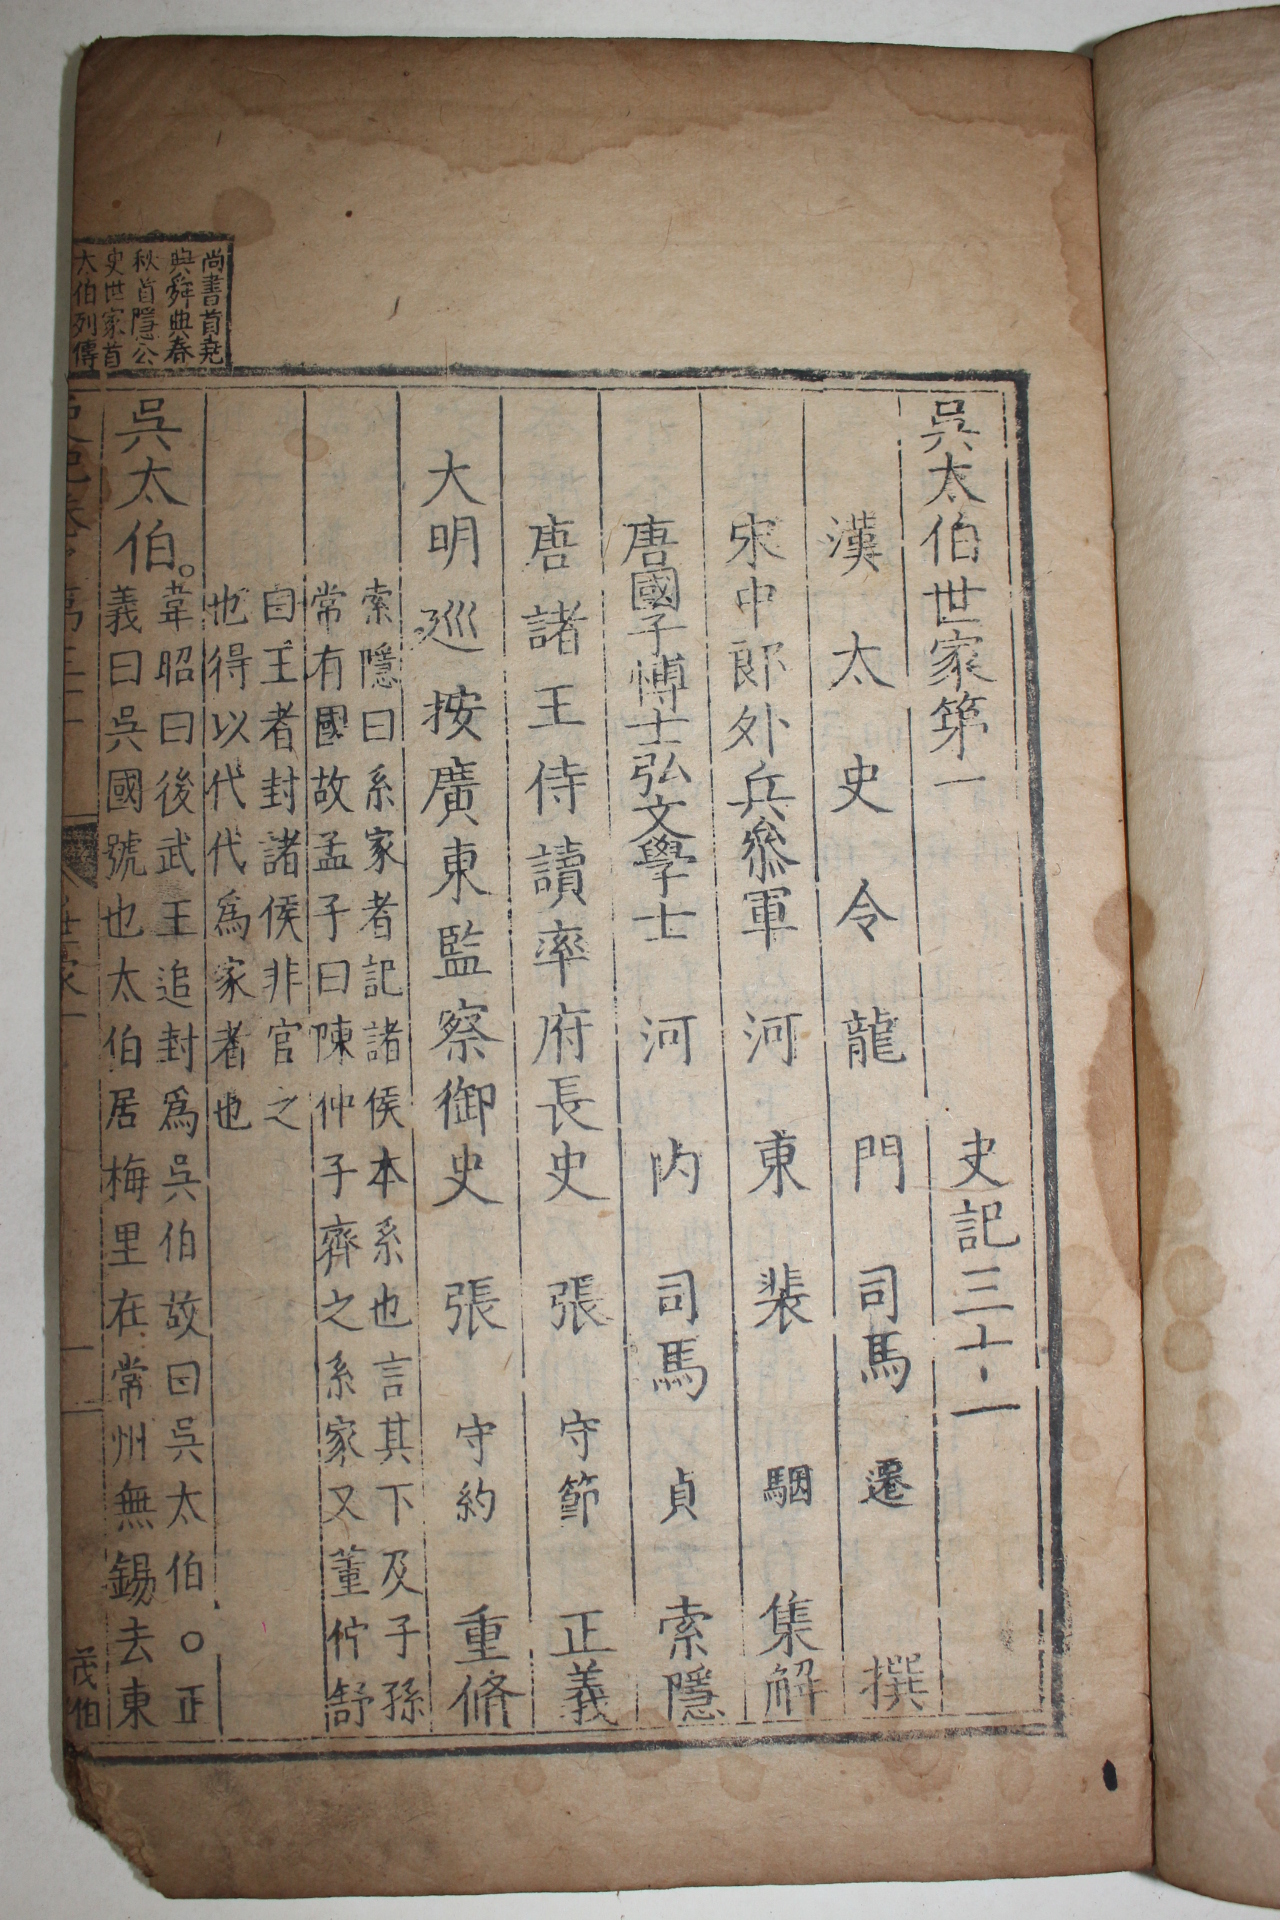 吳太伯世家第一　史記三十一
漢太史令龍門司馬遷撰
宋中郎外兵參軍河東裴駰集解
唐國子博士弘文學士河內司馬貞索隱
唐諸王侍讀率府長史張守節正義
大明巡按廣東監察御史張守約重脩
索隱曰系家者記諸侯本系也言其下及子孫
常有國故孟子曰陳仲子齊之系家又董仲舒
曰王者封諸侯非官之
也得以代代爲家者也
吳太伯。
韋昭曰後武王追封爲吳伯故曰吳太伯○正
義曰吳國號也太伯居梅里在常州無錫去東
尚書首堯
典舜典春
秋首隱公
史世家首
太伯列傳
茂伯